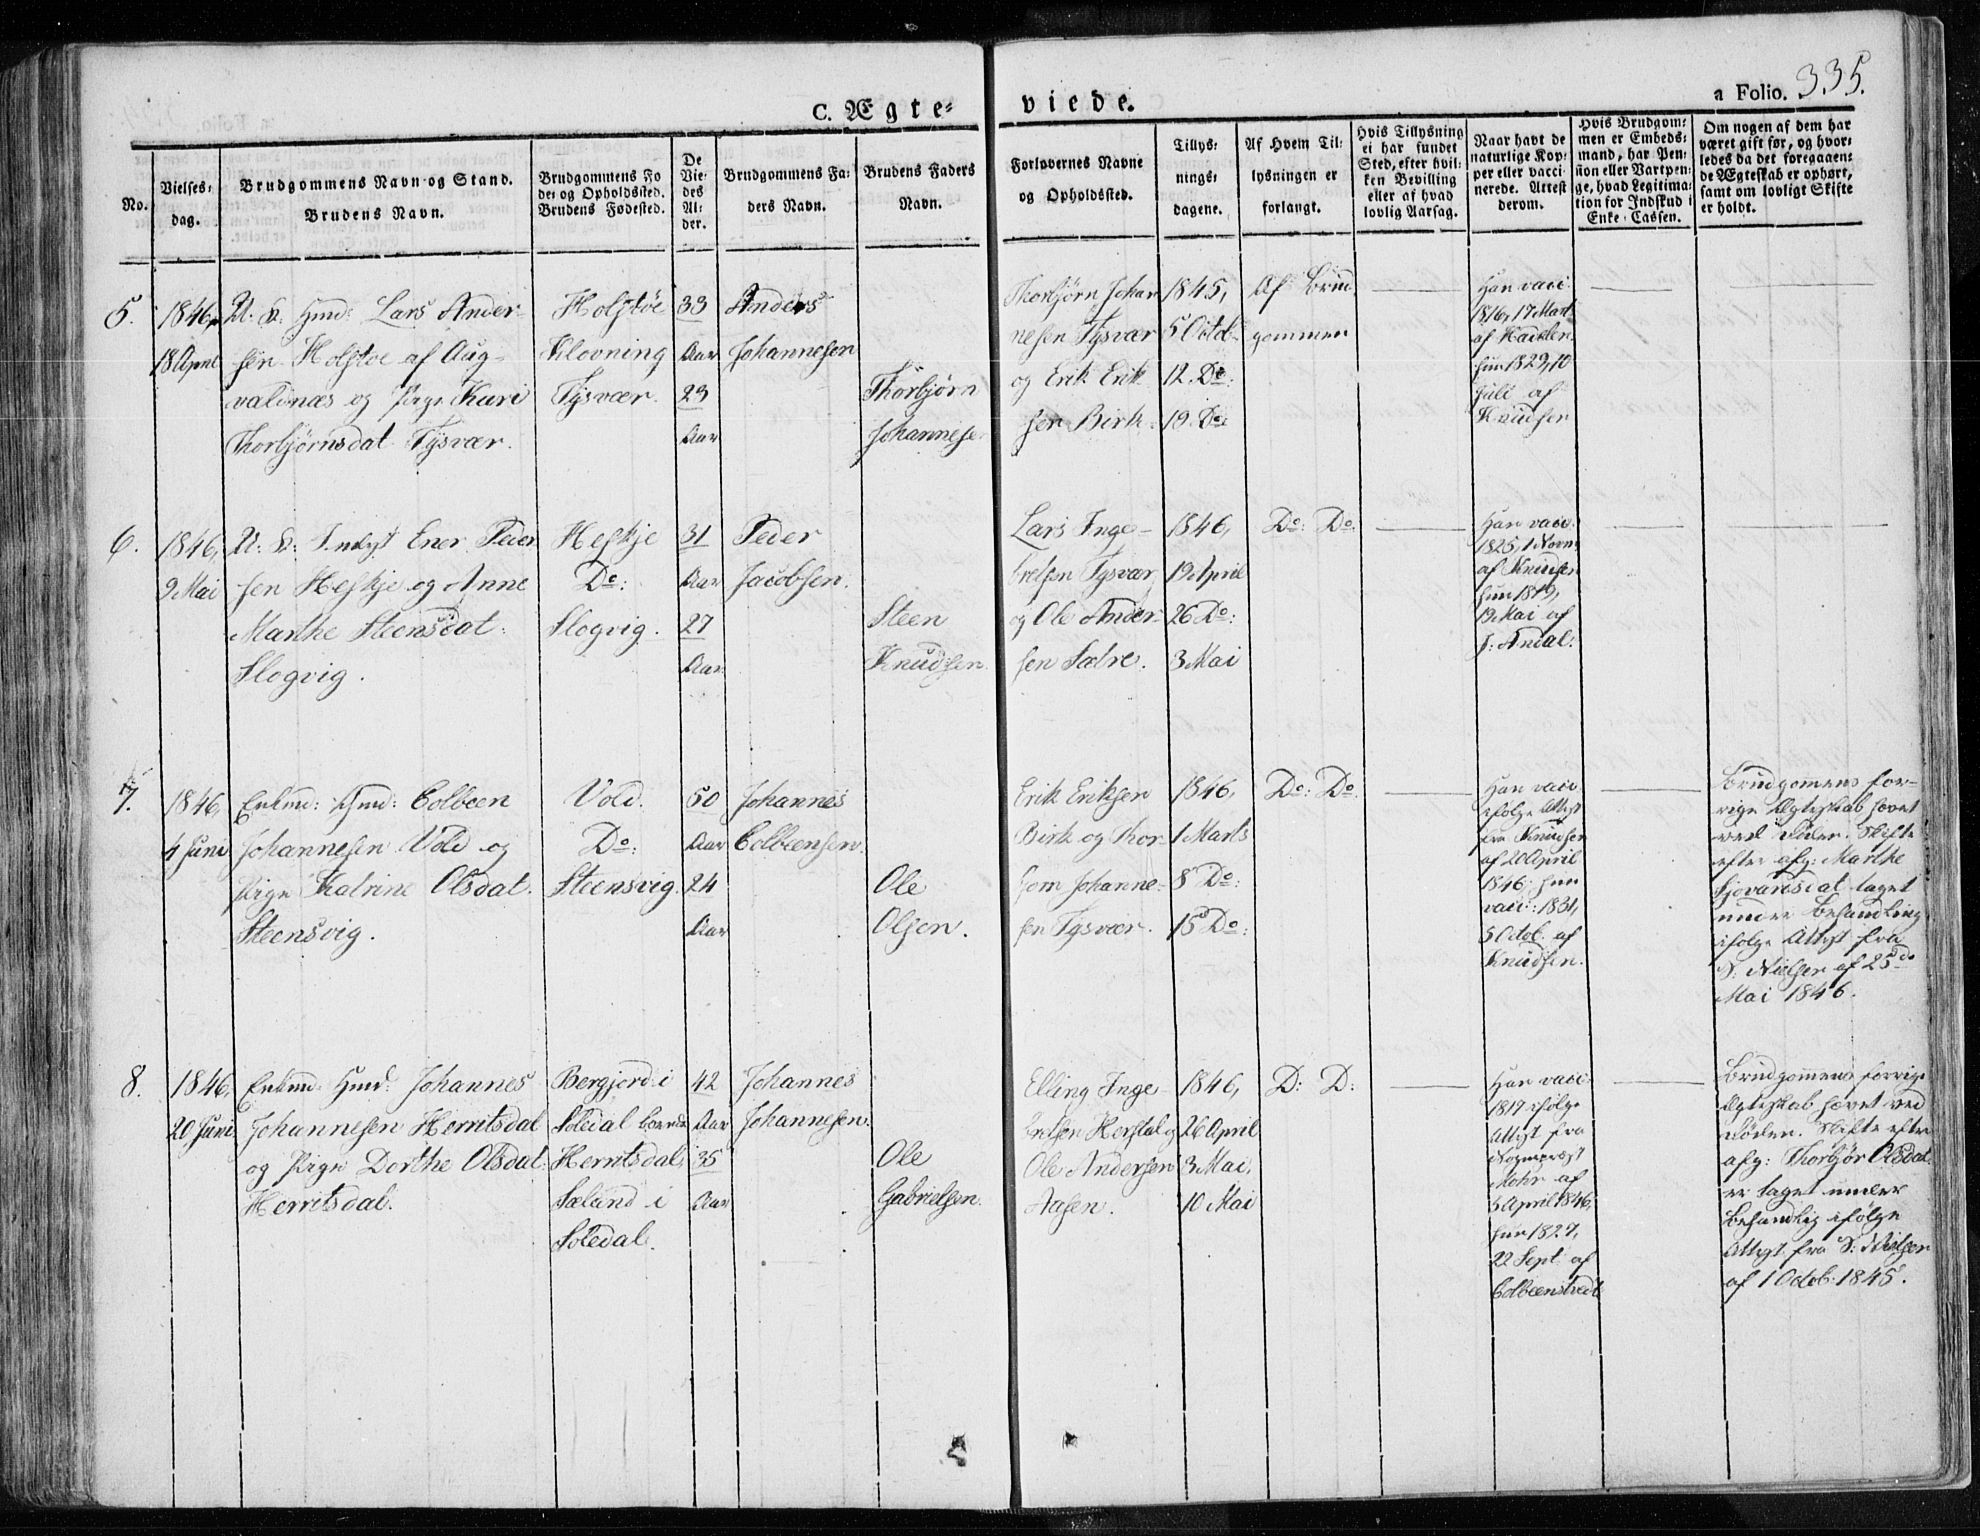 C. Ægte-
viede.
a Folio. 335.
No.
Vielses-
dag.
Brudgommens Navn og Stand.
Brudens Navn.
Brudgommens Fø
de- og Opholdssted.
Brudens Fødested.
De
Vie-
des
Al-
der.
Brudgommens Fa-
ders Navn.
Brudens Faders
Navn.
Forlovernes Navne
og Opholdssted.
Tillys-
nings-
dagene.
Af Hvem Til-
lysningen er
forlangt.
Hvis Tillysning
ei har fundet
Sted, efter hvil-
ken Bevilling
eller af hvad
lovlig Aarsag.
Naar havt de
naturlige Kop-
per eller vacci-
nerede. Attest
derom.
Hvis Brudgom-
men er Embeds-
mand, har Pen-
sion eller Vartpen-
ge, hvad Legitima-
tion for Indskud i
Enke-Cassen.
Om nogen af dem har
været gift før, og hvor-
ledes da det foregaaen-
de Ægteskab er ophørt,
samt om lovligt Skifte
er holdt.
5.
1846,
18 April
U. K. Gmd: Lars Ander-
sen Holstøe af Aug-
valdnæs og Pige Kari
Thorbjørnsdat Tysvær.
Holstøe
Klovning
Tysvær.
33
Aar
23
Aar
Anders
Johannesen
Thorbjørn
Johannese
Thorbjørn Johan
nesen Tysvær
og Erik Erik
sen Birk.
1845,
5 Octob
12. Do:
19. Do:
Af Brud
gommen
Han vaci:
1816, 17 Marts
af
hun 1829, 10
Juli af
Knudsen
6.
1846,
9 Mai
U: K: Inds: Ener Peder
sen Heskje og Anne
Marthe Steensdat:
Slogvig.
Heskje
Do:
Slogvig.
31
Aar
27
Aar
Peder
Jacobsen.
Steen
Knudsen.
Lars Inge-
bretsen Tysvær
og Ole Ander-
sen Sætre.
1846,
19 April
26 Do:
3 Mai
Do: Do:
Han vaci:
1825, 1 Novm:
af Knudsen
hun 1819,
19 Mai af
J: Andal.
7.
1846,
4 Juni
Enkmd: Gmd: Colbeen
Johannesen Vold og
Pige Katrine Olsdat.
Steensvig.
Vold.
Do:
Steensvig.
50
Aar
24
Aar
Johannes
Colbeensen.
Ole
Olsen.
Erik Eriksen
Birk og Thor-
Johanne-
sen Tysvær.
1846,
1 Marts
8 Do:
15 Do:
Do: Do.
Han vaci:
ifølge Attest
fra Knudsen
af 20 April
1846, hun
vaci: 1831,
5 Octob: af
Knudsen.
Brudgommens for-
rige Ægteskab hævet
ved Døden. Skifte
efter afg: Marthe
Sjovarsdat taget
under Behandling
ifølge Attest fra
S: Nielsen af 25de
Mai 1846.
8.
1846,
20 Juni
Enkmd: Gmd: Johannes
Johannesen Herritsdal
og Pige Dorthe Olsdat:
Herritsdal.
Bergjord i
Soledal boende
Herritsdal,
Sæland i
Soledal.
42
Aar
35
Aar
Johannes
Johannesen.
Ole
Gabrielsen.
Elling Inge-
bretsen Herstal og
Ole Andersen
Aasen.
1846,
26 April
3 Mai,
10 Mai
D: D:
Han vaci:
1817 ifølge
Attest fra
Sognepræst
Mohr af
5 April 1846,
hun 1827,
22 Sept: af
Colbeenstvedt
Brudgommens forrige
Ægteskab hævet ved
Døden. Skifte efter
afg: Thorbjør Olsdat.
er taget under
Behandlig ifølge
Attest fra S: Nielsen
af 1 Octob: 1845.